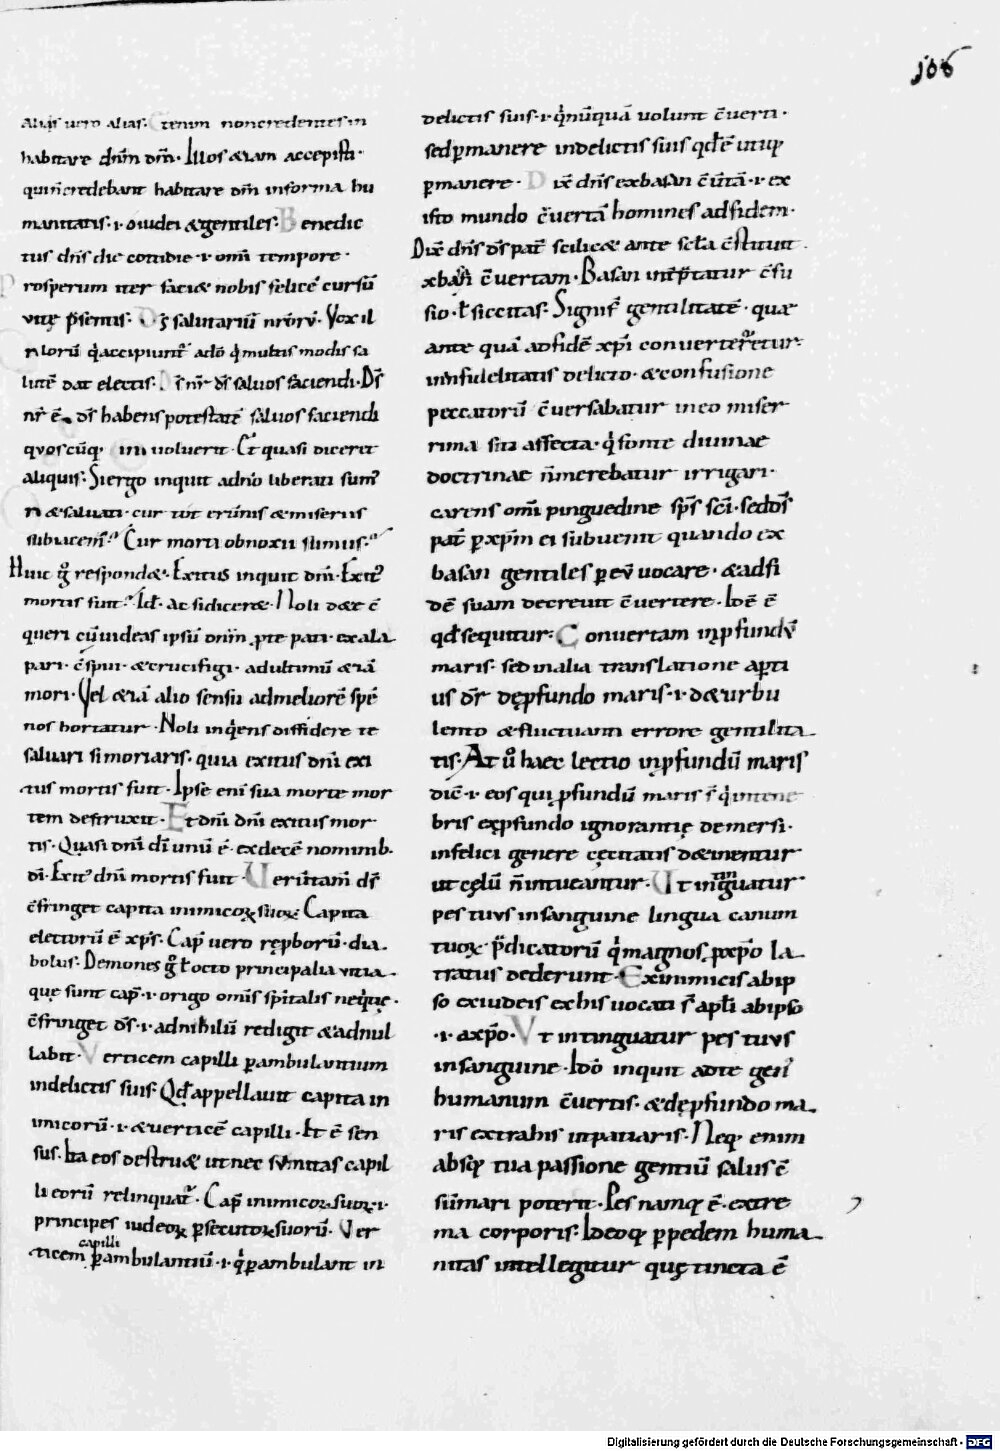 108
Aliqs uero alias. Etenim non credentes in
habitare dnm dm. Illos etiam accepisti.
qui n credebant habitare dm in forma hu
manitatis .i. o iudei et gentiles. Benedic
tus dns die cottidie .i. omi tempore.
Prosperum iter faciet nobis felice cursu
vitę psentis. Ds salutariu nroru. Vox il
loru q accipiunt ado q multis modis sa
lute dat electis. Ds nr ds saluos faciendi. Ds
nr ē. ds habens potestate saluos faciendi
quoscuq uoluerit. Et quasi diceret
aliquis. Si ergo inquit adno liberati sum
et saluati. cur tot erumnis et miseriis
subiacem. Cur morti obnoxii sumus.
Huic g respondet. Exitus inquit dni. Exit
mortis fuit. Id. ac si diceret. Noli de te
queri cu uideas ipsu dnm p te pati. ex ala
pari. cspui. et crucifigi. ad ultimu etiā
mori. Vel etiā alio sensu ad meliorē spē
nos hortatur. Noli inqens diffidere te
saluari si moriaris. quia exitus dni exi
tus mortis fuit. Ipse eni sua morte mor
tem destruxit. Et dni dni exitus mor
tis. Quasi dni di unu ē. ex decē nominib.
di. Exit dni mortis fuit. Verutam ds
cfringet capita inimicor suor. Capita
electoru ē xps. Cap uero reproboru. dia
bolus. Demones g t octo principalia vitia
quę sunt cap .i. origo omis spitalis nequitię.
cfringet ds .i. ad nihilu redigit et adnul
labit. Verticem capilli pambulantium
in delictis suis. Qd appellauit capita in
imicoru .i. et uerticē capilli. Et ē sen
sus. Ita eos destruet ut nec summitas capil
li eoru relinquat. Cap inimicor suor .i.
principes iudeor psecutor suoru. Ver
capilli
ticem pambulantiu .i. q pambulant in
delictis suis .i. q nuquā uolunt cuerti.
sed pmanere in delictis suis qd ē utiq
pmanere. Dix dns ex basan cuertā .i. ex
isto mundo cuertā homines ad fidem.
Dix dns ds pat scilicet ante scla cstituit
ex basan cuertam. Basan intptatur cfu
sio. t siccitas. Signif gentilitate. quae
ante quā ad fidē xpi converteretur
in infidelitatis delicto. et confusione
peccatoru cuersabatur in eo miser
rima siti affecta. q fonte diuinae
doctrinae n merebatur irrigari.
carens omi pinguedine sps sci. sed ds
pat p xpm ei subuenit quando ex
basan gentiles p eu uocare. et ad fi
dē suam decreuit cuertere. Idē ē
qd sequitur. Convertam in pfundu
maris. sed in alia translatione apti
us dr de pfundo maris .i. de turbu
lento et fluctuanti errore gentilita
tis. At u haec lectio in pfundu maris
dic .i. eos qui pfundu maris s q in tene
bris ex pfundo ignorantię demersi.
infelici genere cęcitatis detinentur
ut cęlu n intueantur. Ut intinguatur
pes tuus in sanguine lingua canum
tuor. pdicatoru q magnos p xpo la
tratus dederunt. Ex inimicis ab ip
so ex iudeis ex his uocati s apli ab ipso
.i. a xpo. Ut intinguatur pes tuus
in sanguine. Ido inquit ad te gen
humanum cuertis. et de pfundo ma
ris extrahis ut patiaris. Neq enim
absq tua passione gentiu salus ē
sumari poterit. Pes namq ē. extre
ma corporis. Ideoq p pedem huma
nitas intellegitur quę tincta ē
Digitalisierung gefördert durch die Deutsche Forschungsgemeinschaft - DFG